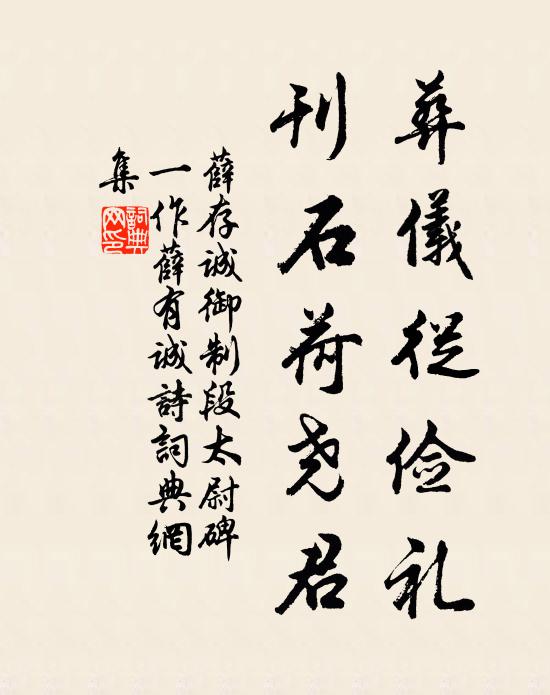 葬儀從俭礼
刊石荷尧君
薛存诚御制段太尉碑
一作薛有诚詩詞典網
集
詞典網印